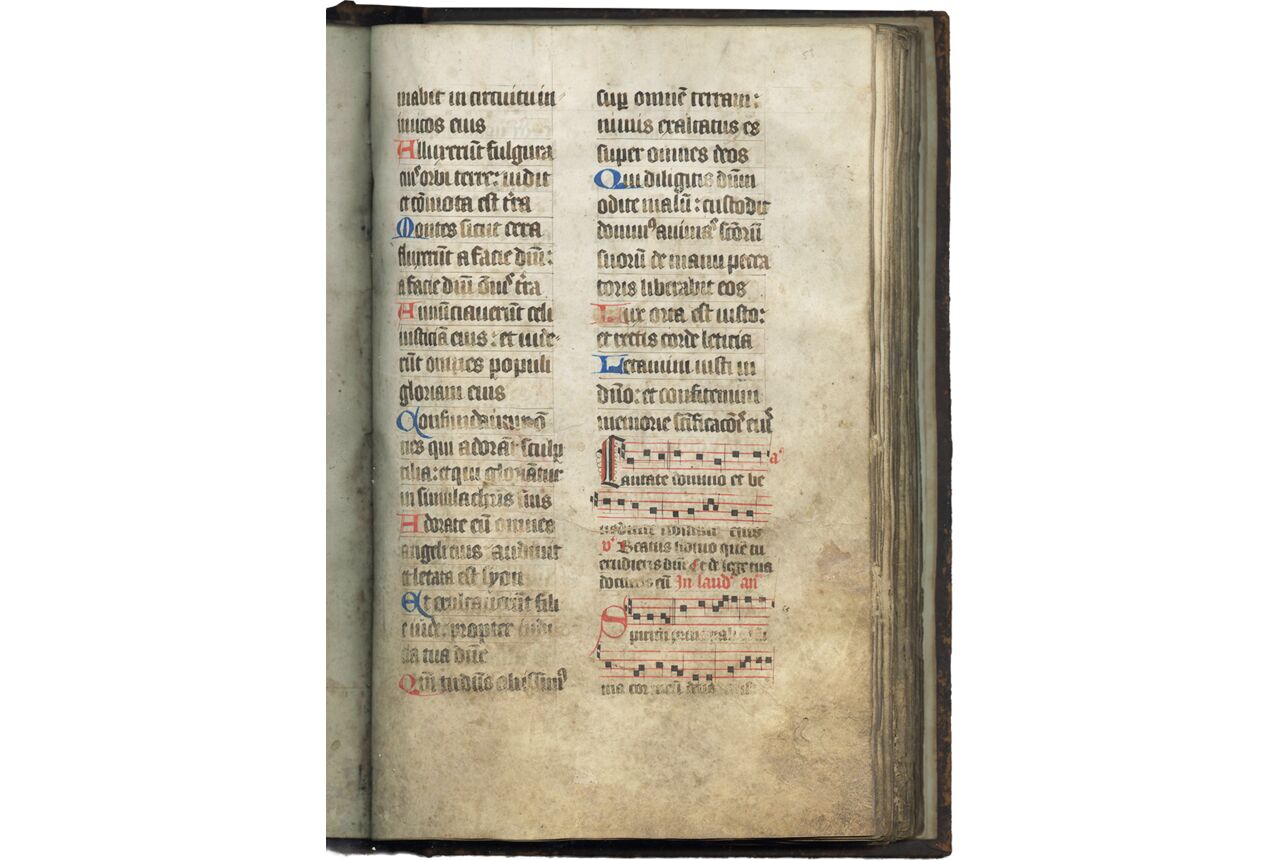 mabit in circuitu in
imicos eius
Alluxerūt fulgura
ei⁹ orbi terre: uidit
et cōmota est t̄ra
Montes sicut cera
fluxerūt a facie dn̄i:
a facie dn̄i om̄is t̄ra
Annūciauerūt celi
iusticiā eius: et uide
rūt omnes populi
gloriam eius
Confundantur om̄
nes qui adorāt sculp
tilia: et qui gloriātur
in simulachris suis
Adorate eū omnes
angeli eius audiuit
et letata est syon
Et exultauerūt fili
e iude: propter iudi
cia tua dn̄e
Qm̄ tu dn̄s altissim⁹
sup omnē terram:
nimis exaltatus es
super omnes deos
Qui diligitis dn̄m
odite malū: custodit
domin⁹ animas scōrū
suorū de manu pecca
toris liberabit eos
Lux orta est iusto:
et rectis corde leticia
Letamini iusti in
dn̄o: et confitemini
memorie scīficacōis ei⁹
Cantate domino et be
nedicite nomini eius
v̓ Beatus homo quē tu
erudieris dn̄e Et de lege tua
docueris eū In laud̓ an̄
Spiritu principali
ma cor meū deus